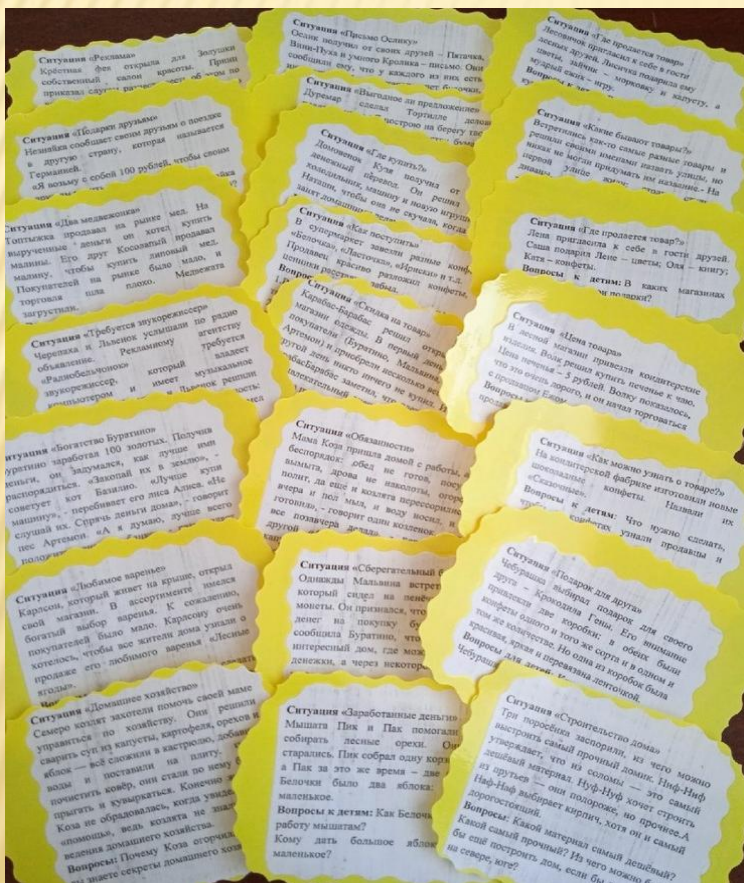 Ситуация «Реклама»
Крёстная фея открыла для Золушки
собственный салон красоты. Принц
приказал
Ситуация «Подарки друзьям»
Незнайка сообщает своим друзьям о поездке
в другую страну, которая называется
Германией.
«Я возьму с собой 100 рублей, чтобы своим
Ситуация «Два медвежонка»
Топтыжка продавал на рынке мед. На
вырученные деньги он хотел купить
малины. Его друг Косолапый продавал
малину, чтобы купить липовый мед.
Покупателей на рынке было мало, и
торговля шла плохо. Медвежата
загрустили.
Ситуация «Требуется звукорежиссер»
Черепаха и Львенок услышали по радио
объявление. Рекламному агентству
«Радиобельчонок» требуется
звукорежиссер, который владеет
компьютером и имеет музыкальное
и Львенок решили
Ситуация «Богатство Буратино»
Буратино заработал 100 золотых. Получив
деньги, он задумался, как лучше ими
распорядиться. «Закопай их в землю», -
советует кот Базилио. «Лучше купи
машину», - перебивает его лиса Алиса. «Не
слушай их. Спрячь деньги дома», - говорит
пес Артемон. «А я думаю, лучше всего
Ситуация «Любимое варенье»
Карлсон, который живет на крыше, открыл
свой магазин. В ассортименте имелся
богатый выбор варенья. К сожалению,
покупателей было мало. Карлсону очень
хотелось, чтобы все жители дома узнали о
продаже его любимого варенья «Лесные
ягоды».
Ситуация «Домашнее хозяйство»
Семеро козлят захотели помочь своей маме
управиться по хозяйству. Они решили
сварить суп из капусты, картофеля, орехов и
яблок — всё сложили в кастрюлю, добавили
воды и поставили на плиту.
почистить ковёр, они стали по нему
прыгать и кувыркаться. Конечно
Коза не обрадовалась, когда увидела
«помощь», ведь козлята не знали
ведения домашнего хозяйства.
Вопросы: Почему Коза огорчилась
вы знаете секреты домашнего
Ситуация «Письмо Ослику»
Ослик получил от своих друзей – Пятачка,
Вини-Пуха и умного Кролика – письмо. Они
сообщили ему, что у каждого из них есть
Ситуация «Выгодное ли предложение»
Дуремар сделал Тортилле
построю на берегу
Ситуация «Где купить?»
Домовенок Кузя получил от
денежный перевод. Он решил
холодильник, машину и новую
Наташи, чтобы она не скучала, когда
занят домашними
Ситуация «Как поступить»
В супермаркет завезли разные
«Белочка», «Ласточка», «Ириски» и т.д.
Продавец красиво разложил конфеты,
ценники расставить забыл.
Ситуация «Скидка на товар»
Карабас-Барабас решил
магазин одежды. В первый день
покупатели (Буратино, Мальвина
Артемон) и приобрели несколько
другой день никто ничего не купил. И
заметил, что
Ситуация «Обязанности»
Мама Коза пришла домой с работы, а
беспорядок: обед не готов,
вымыта, дрова не наколоты, огород
полит, да еще и козлята перессорились
вчера и пол мыл, и воду носил, и
готовил», - говорит один козленок.
все позавчера делал»,
другой
Ситуация «Сберегательный
Однажды Мальвина
который сидел на
монеты. Он признался, что
денег на покупку
сообщила Буратино, что
интересный дом, где
денежки, а через
Ситуация «Заработанные деньги»
Мышата Пик и Пак помогали
собирать лесные орехи. Они
старались. Пик собрал одну
а Пак за это же время – две
Белочки было два яблока:
маленькое.
Вопросы к детям: Как
работу мышатам?
Кому дать большое
маленькое?
Ситуация «Где продается товар»
Лесовичок пригласил к себе в гости
лесных друзей. Лисичка подарила ему
цветы, зайчик – морковку и капусту, а
мудрый ежик - игру.
Вопросы к
Ситуация «Какие бывают товары?»
Встретились как-то самые разные товары и
решили своими именами назвать улицы, но
никак не могли придумать им название.- На
первой улице живут
Ситуация «Где продается товар?»
Лена пригласила к себе в гости друзей.
Саша подарил Лене – цветы; Оля – книгу;
Катя – конфеты.
Вопросы к детям: В каких магазинах
подарки?
Ситуация «Цена товара»
В лесной магазин привезли кондитерские
изделия. Волк решил купить печенье к чаю.
Цена печенья – 5 рублей. Волку показалось,
что это очень дорого, и он начал торговаться
с продавцом Ежом.
Вопросы
Ситуация «Как можно узнать о товаре?»
На кондитерской фабрике изготовили новые
шоколадные конфеты. Назвали их
«Сказочные».
Вопросы к детям: Что нужно сделать,
конфетах узнали продавцы и
Ситуация «Подарок для друга»
Чебурашка выбирал подарок для своего
друга – Крокодила Гены. Его внимание
привлекли две коробки: в обеих были
конфеты одного и того же сорта и в одном и
том же количестве. Но одна из коробок была
красивая, яркая и перевязана ленточкой.
Вопросы для детей:
Ситуация «Строительство дома»
Три поросёнка заспорили, из чего можно
выстроить самый прочный домик. Ниф-Ниф
утверждает, что из соломы — это самый
дешёвый материал. Нуф-Нуф хочет строить
из прутьев — они подороже, но прочнее. А
Наф-Наф выбирает кирпич, хотя он и самый
дорогостоящий.
Вопросы: Какой материал самый дешёвый?
Какой самый прочный? Из чего можно
бы ещё построить дом, если бы
на севере, юге?